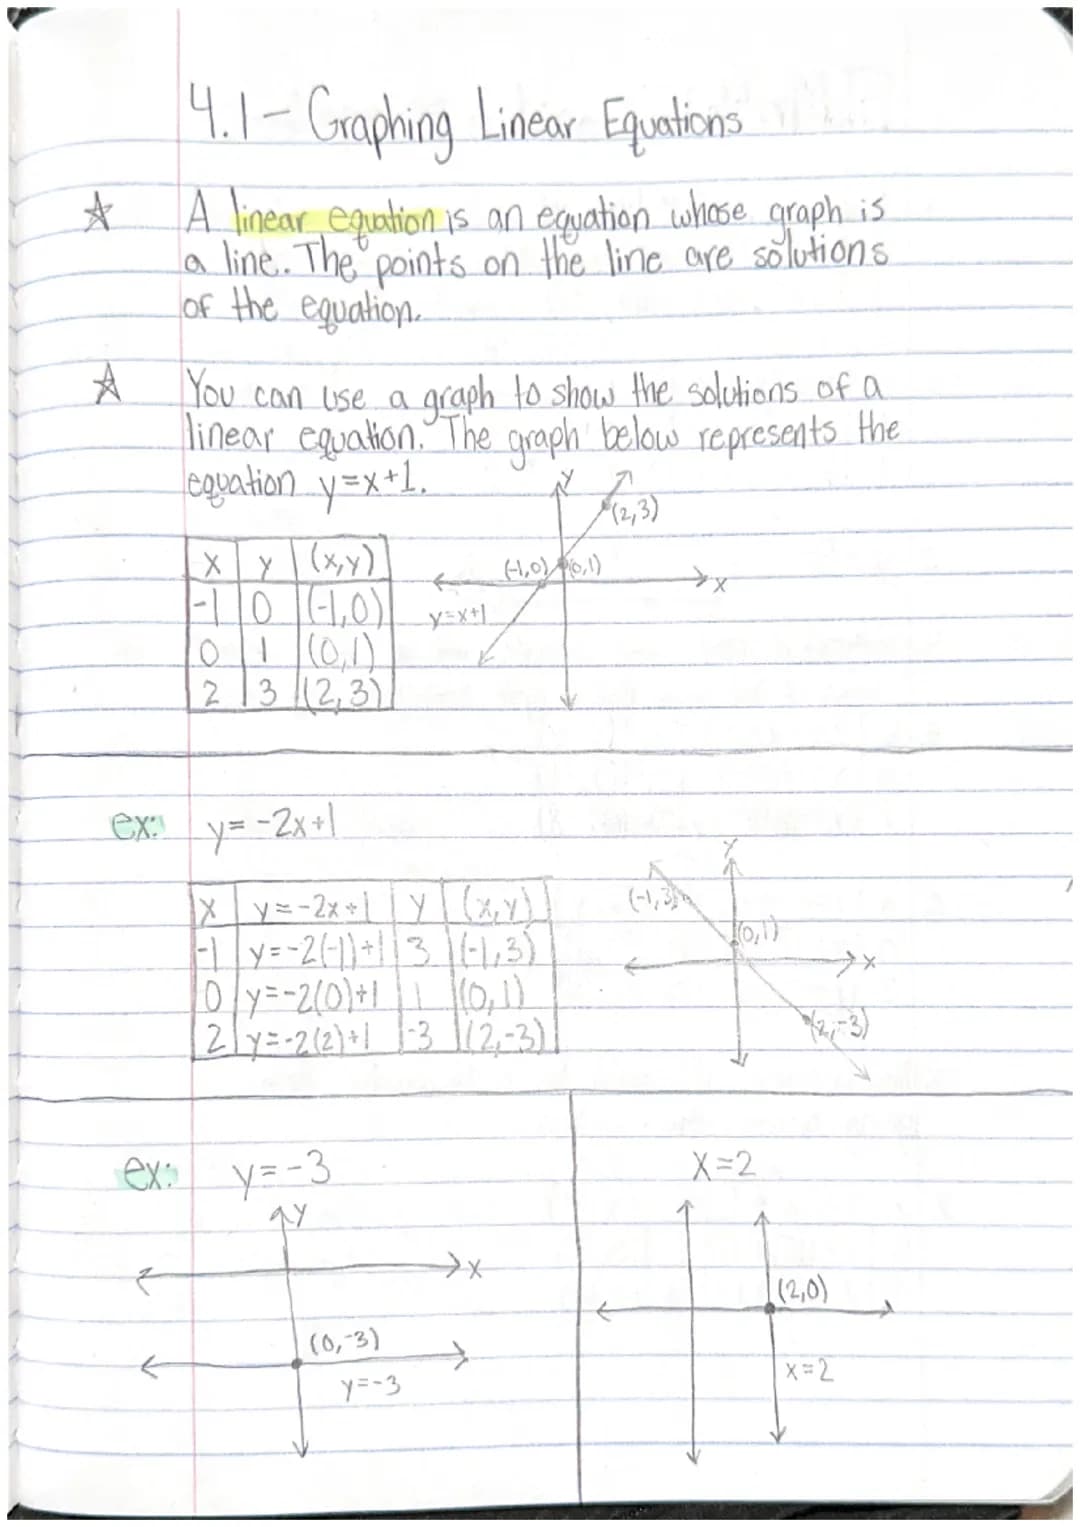 4.1 - Graphing Linear Equations
☆ A linear equation is an equation whose graph is
a line. The points on the line are solutions
of the equation.
☆ You can use a graph to show the solutions of a
linear equation. The graph below represents the
equation y=x+1.
y
(2,3)
x y (x,y)
(-1,0) (0,1)
x
-1 0 (-1,0)
y=x+1
0 1 (0,1)
2 3 (2,3)
ex: y=-2x+1
y
x y=-2x+1 y (x,y)
(-1,3)
(0,1)
-1 y=-2(-1)+1 3 (-1,3)
x
0 y=-2(0)+1 1 (0,1)
2 y=-2(2)+1 -3 (2,-3)
(2,-3)
ex: y=-3
y
x
(0,-3)
y=-3
x=2
(2,0)
x=2